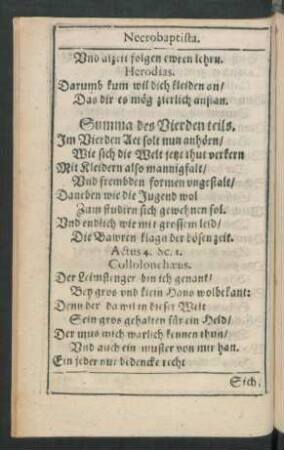 Necrobaptista.
Vnd alzeit folgen ewren lehrn.
Herodias.
Darumb kum wil dich kleiden an/
Das dir es mög zierlich anstan.
Summa des Vierden teils.
Im Vierden Act solt nun anhörn/
Wie sich die Welt jetzt thut verkern
Mit Kleidern also mannigfalt/
Vnd frembden formen vngestalt/
Daneben wie die Jugend wol
Zum studirn sich gewehnen sol.
Vnd endlich wir mit grossem leid/
Die Bawren klagn der bösen zeit.
Actus 4. Sc. 1.
Collolonchæus.
Der Leimstenger bin ich genant/
Bey gros vnd klein Hans wolbekant:
Denn der da wil in dieser Welt
Sein gros gehalten für ein Held/
Der mus mich warlich kennen thun/
Vnd auch ein muster von mir han.
Ein jeder nur bedencke recht
Sich.